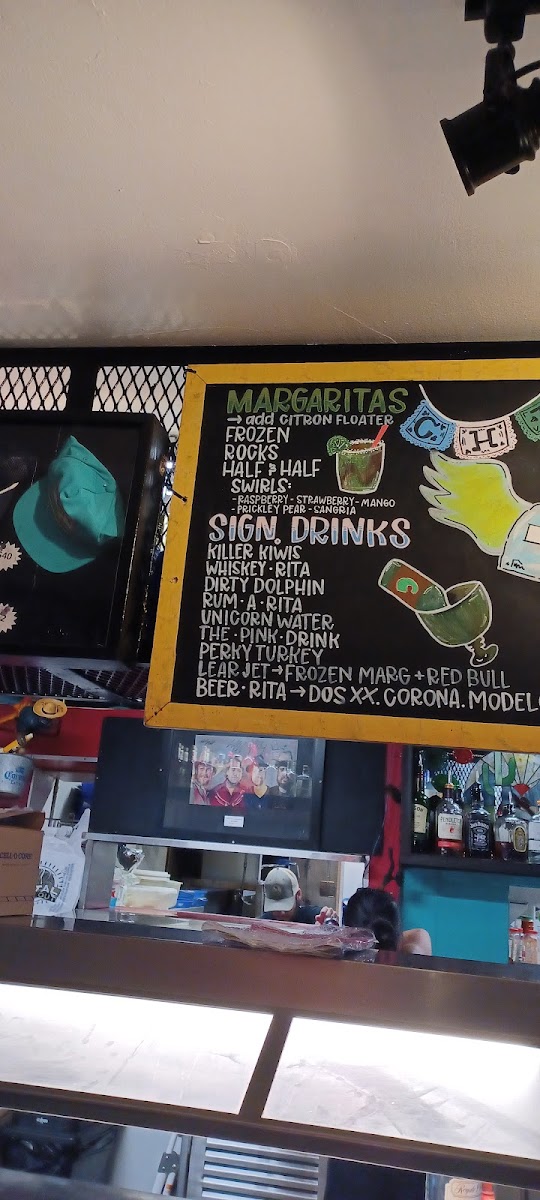 MARGARITAS
→ add CITRON FLOATER
FROZEN
ROCKS
HALF & HALF
SWIRLS:
-RASPBERRY-STRAWBERRY-MANGO
-PRICKLEY PEAR-SANGRIA
SIGN. DRINKS
KILLER KIWIS
WHISKEY·RITA
DIRTY DOLPHIN
RUM·A·RITA
UNICORN WATER
THE·PINK·DRINK
PERKY TURKEY
LEAR JET→FROZEN MARG+RED BULL
BEER·RITA→DOS XX. CORONA. MODELO
C H
C